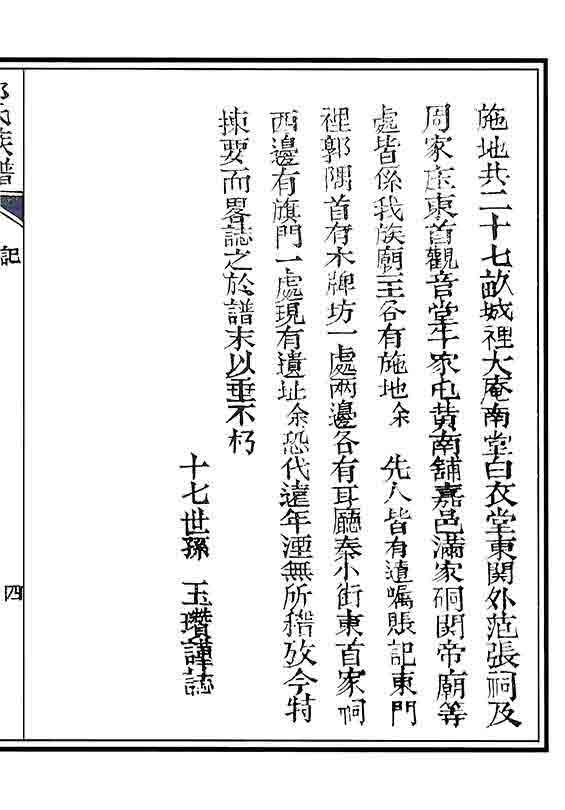 施地共二十七畝城裡大庵南堂白衣堂東関外范張祠及
周家庄東首觀音堂于家屯黄南舖嘉邑滿家硐関帝廟等
處皆係我族廟主各有施地余 先人皆有遺囑賬記東門
裡郭隅首有木牌坊一處两邊各有耳廳秦小街東首家祠
西邊有旗門一處現有遺址余恐代遠年湮無所稽攷今特
揀要而畧誌之於譜末以垂不朽
十七世孫 玉瓚謹誌
氏族譜
記
四